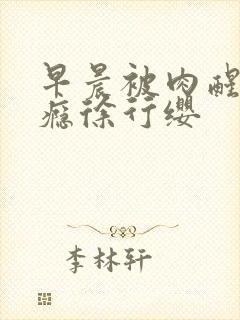 早晨被肉醒
瘾徐行缨
李林轩